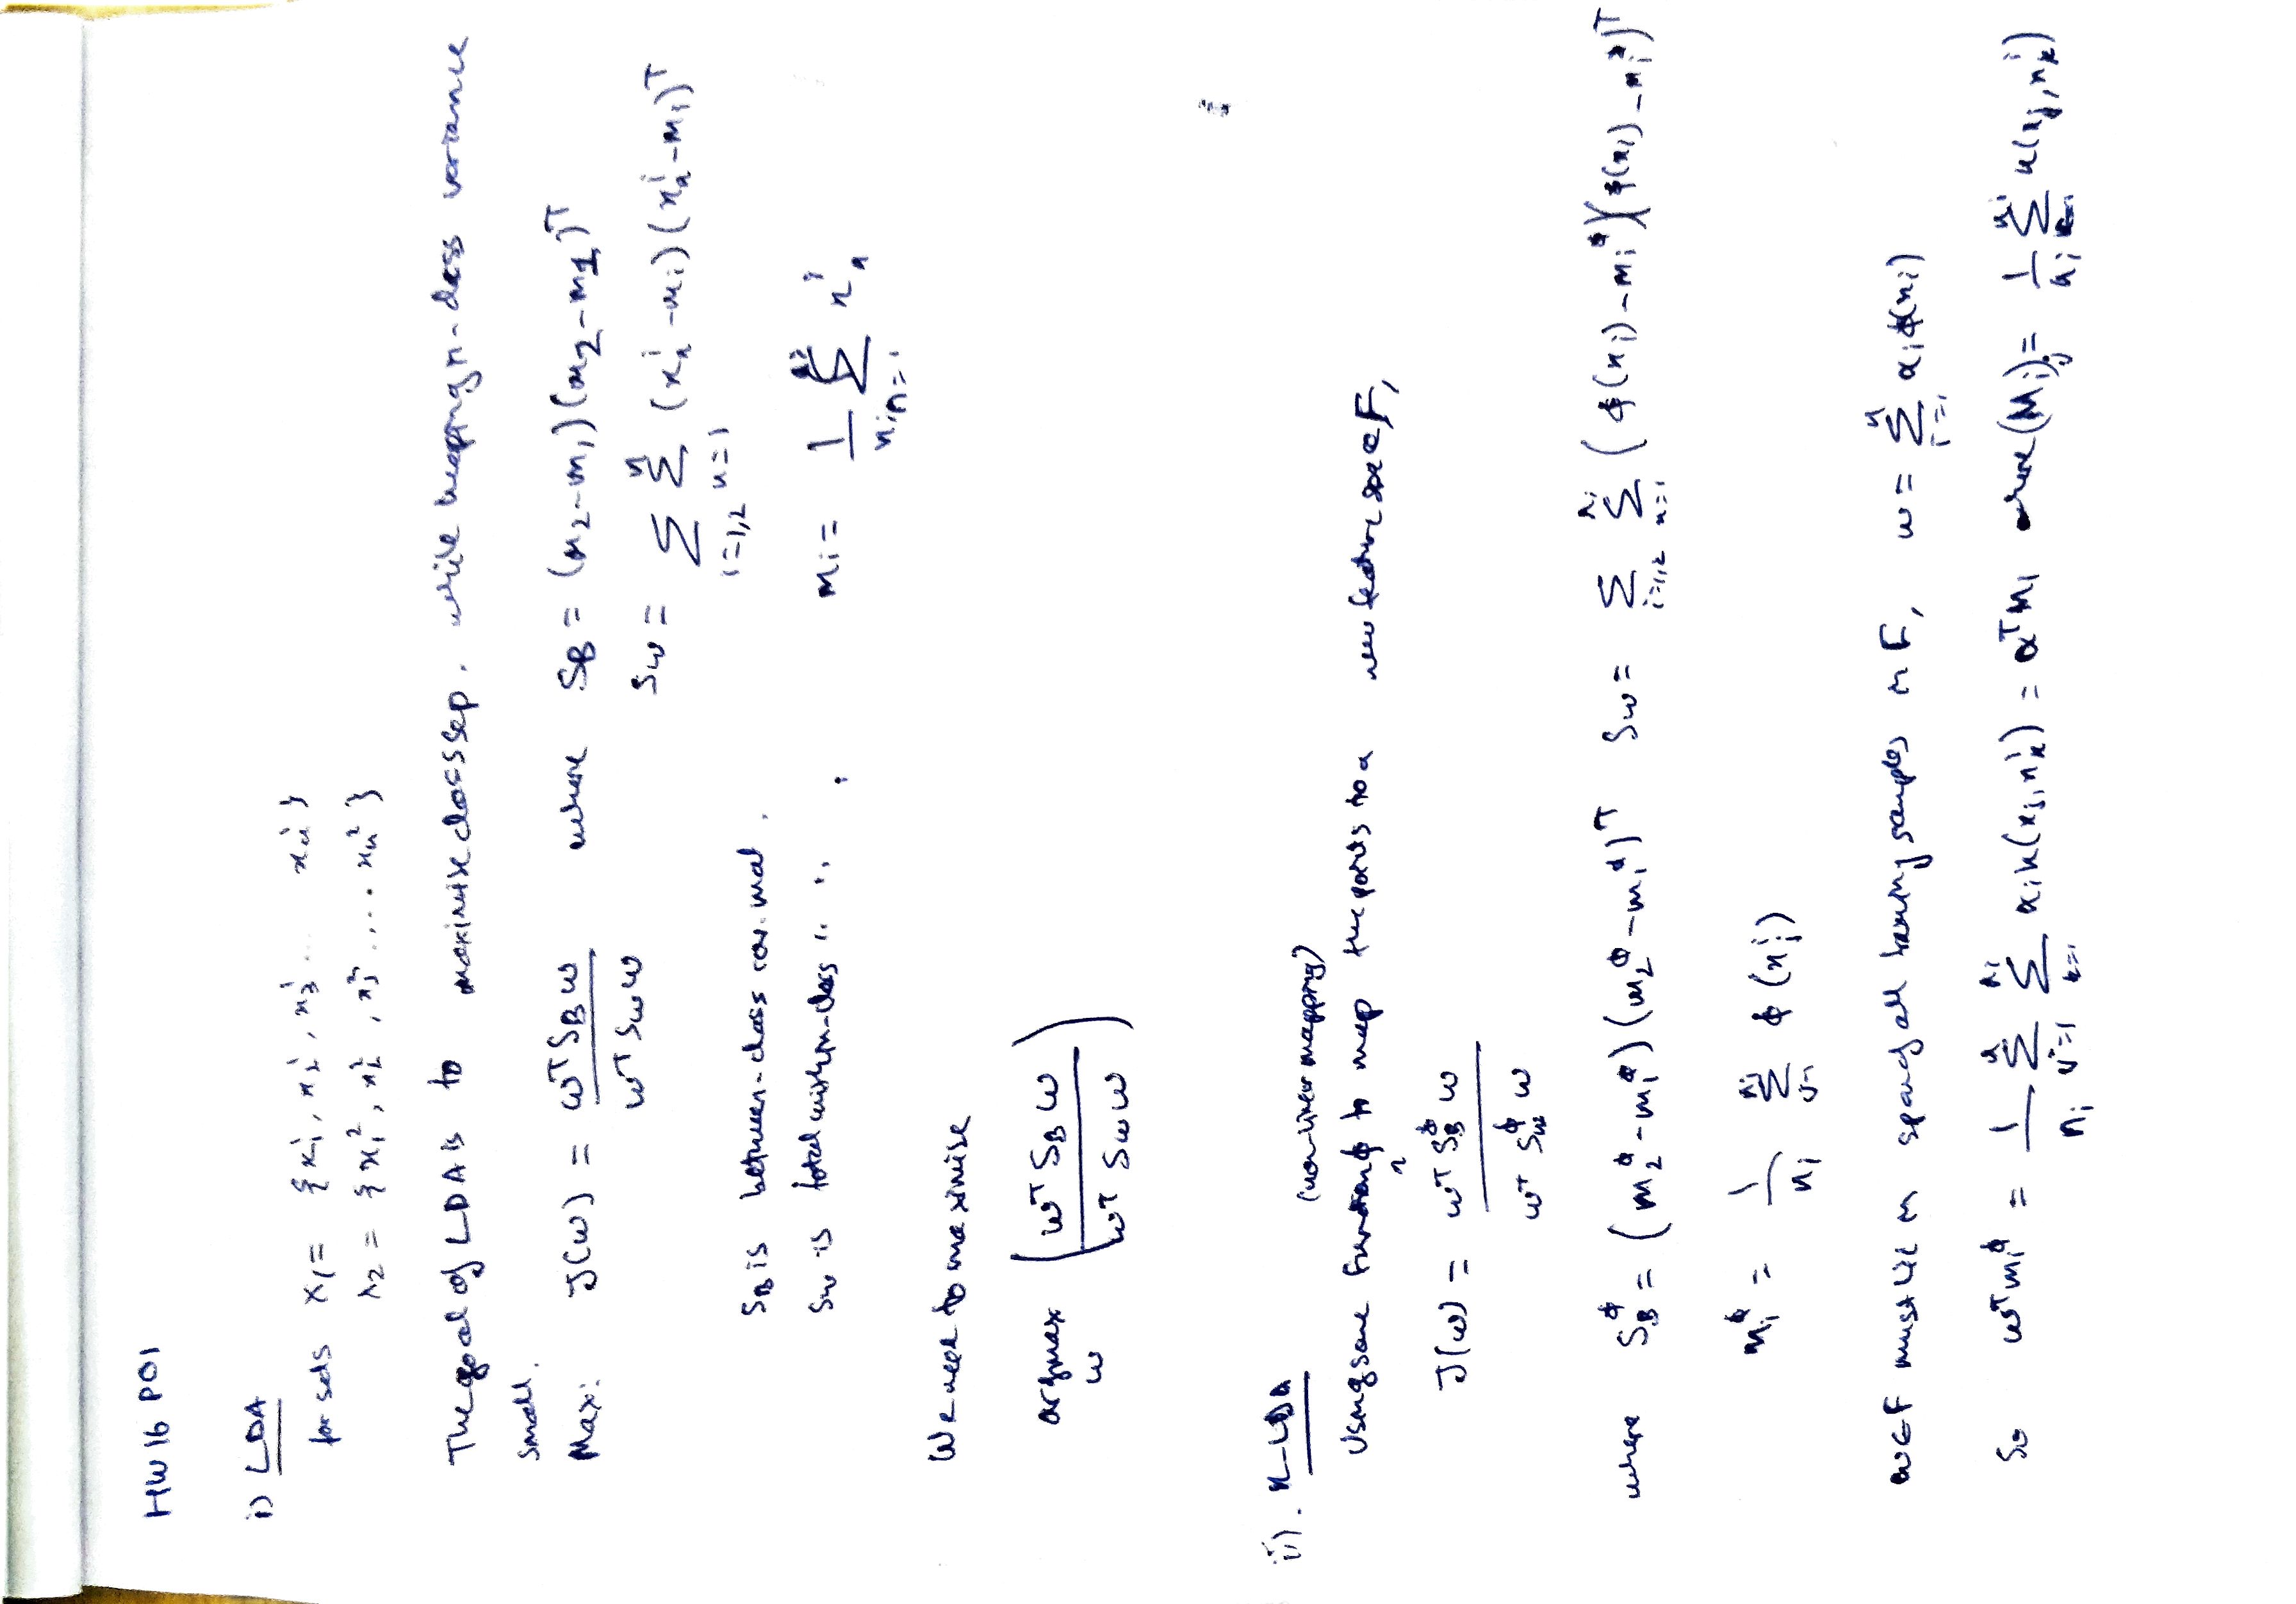 HW16 P01
i) LDA
for sets X₁ = {x₁¹, x₂¹, x₃¹ ... xₙ¹}
X₂ = {x₁², x₂², x₃² .... xₙ²}
The goal of LDA is to maximize class sep. while keeping n-class variance
small.
Max: J(ω) = ωᵀ S_B ω / ωᵀ S_ω ω where S_B = (m₂ - m₁)(m₂ - m₁)ᵀ
S_ω = Σ_{i=1,2} Σ_{n=1}^{n} (xₙⁱ - mᵢ)(xₙⁱ - mᵢ)ᵀ
S_B is between-class cov. mat.
S_ω is total within-class " " "
mᵢ = 1/nᵢ Σ_{n=1}^{nᵢ} xₙⁱ
We need to maximise
argmax_ω (ωᵀ S_B ω / ωᵀ S_ω ω)
ii). K-LDA
(non-linear mapping)
Using some function ϕ to map the points to a new feature space F,
J(ω) = ωᵀ S_B^ϕ ω / ωᵀ S_ω^ϕ ω
where S_B^ϕ = (m₂^ϕ - m₁^ϕ)(m₂^ϕ - m₁^ϕ)ᵀ S_ω = Σ_{i=1,2} Σ_{n=1}^{nᵢ} (ϕ(xᵢ) - mᵢ^ϕ)(ϕ(xᵢ) - mᵢ^ϕ)ᵀ
mᵢ^ϕ = 1/nᵢ Σ_{j=1}^{nᵢ} ϕ(xⱼⁱ)
ω∈F must lie in span of all training samples in F, ω = Σ_{i=1}^{n} αᵢϕ(xᵢ)
So ωᵀmᵢ^ϕ = 1/nᵢ Σ_{j=1}^{n} Σ_{k=1}^{nᵢ} αⱼk(xⱼ, xₖⁱ) = αᵀMᵢ where (Mᵢ)ⱼ = 1/nᵢ Σ_{k=1}^{nᵢ} k(xⱼ, xₖⁱ)